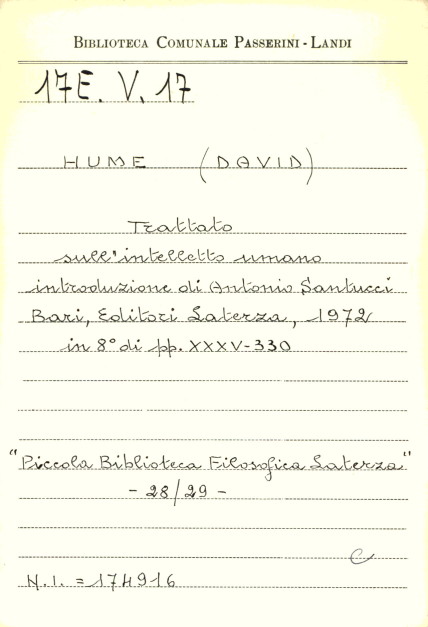 BIBLIOTECA COMUNALE PASSERINI - LANDI
17E. V. 17
HUME (DAVID)
Trattato
sull'intelletto umano
introduzione di Antonio Santucci
Bari, Editori Laterza, 1972
in 8° di pp. XXXV-330
"Piccola Biblioteca Filosofica Laterza"
- 28/29 -
C
N.I. = 174916